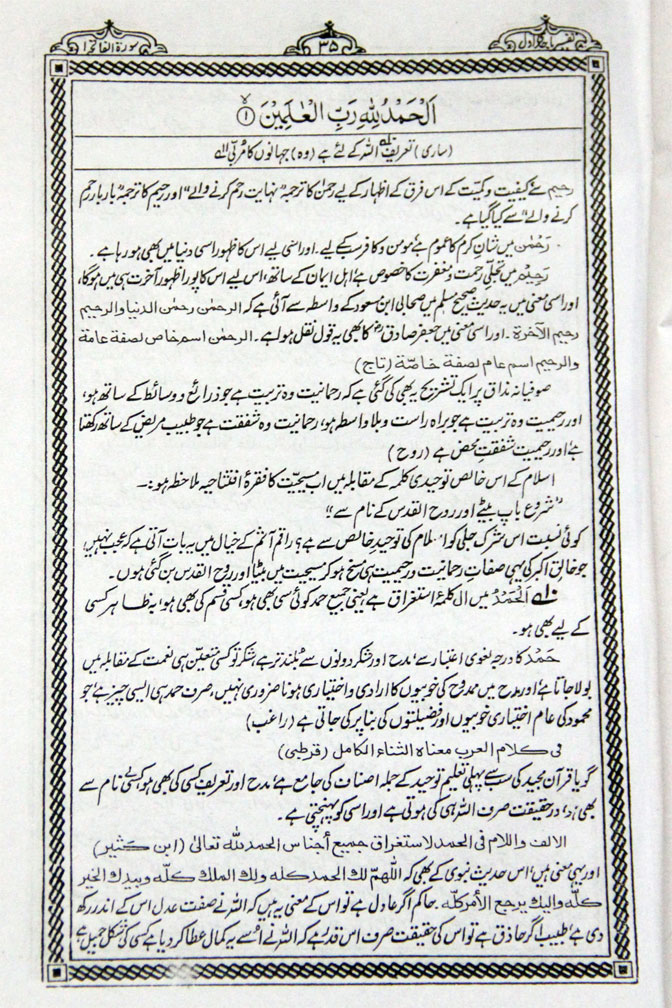 تفسیر ماجدی اول
۳۵
سورۃ الفاتحۃ ۱
اَلْحَمْدُ لِلّٰہِ رَبِّ الْعٰلَمِیْنَ ۱
(ساری) تعریف اللہ کے لئے ہے (وہ) جہانوں کا مربی
رحیم کیفیت و کمیّت کے اس فرق کے اظہار کے لیے رحمٰن کا ترجمہ "نہایت رحم کرنے والے" اور رحیم کا ترجمہ "بار بار رحم
کرنے والے" سے کیا گیا ہے۔
رَحْمٰن میں شانِ کرم کا عموم ہے مومن و کافر سب کے لیے۔ اور اسی لیے اس کا ظہور اسی دنیا میں بھی ہو رہا ہے۔
رَحِیْم میں تجلّیِ رحمت و مغفرت کا خصوص ہے اہل ایمان کے ساتھ، اس لیے اس کا پورا ظہور آخرت ہی میں ہوگا،
اور اسی معنی میں یہ حدیث صحیح مسلم میں صحابی ابن مسعود کے واسطہ سے آئی ہے کہ الرحمٰن رحمٰن الدنیا والرحیم
رحیم الآخرۃ۔ اور اسی معنی میں جعفر صادقؒ کا بھی یہ قول نقل ہوا ہے۔ الرحمٰن اسم خاص لصفة عامة
والرحیم اسم عام لصفة خاصّة (تاج)
صوفیانہ مذاق پر ایک تشریح یہ بھی کی گئی ہے کہ رحمانیت وہ تربیت ہے جو ذرائع و وسائط کے ساتھ ہو،
اور رحیمیت وہ تربیت ہے جو براہ راست و بلا واسطہ ہو، رحمانیت وہ شفقت ہے جو طبیب مریض کے ساتھ رکھتا
ہے، اور رحیمیت شفقتِ محض ہے (روح)
اسلام کے اس خالص توحیدی کلمہ کے مقابلہ میں اب مسیحیّت کا فقرۂ افتتاحیہ ملاحظہ ہو:۔
"شروع باپ بیٹے اور روح القدس کے نام سے"
کوئی نسبت اس شرک جلی کو اسلام کی توحیدِ خالص سے ہے؟ راقم آثم کے خیال میں یہ بات آتی ہے کہ عجب نہیں،
جو خالق اکبر کی یہی صفاتِ رحمانیت و رحیمیت ہی مسخ ہو کر مسیحیت میں بیٹا اور روح القدس بن گئی ہوں۔
اَلْحَمْدُ میں ال کلمۂ استغراق ہے، یعنی جمیع حمد کوئی سی بھی ہو، کسی قسم کی بھی ہو، بہ ظاہر کسی
کے لیے بھی ہو۔
حَمْد کا درجہ لغوی اعتبار سے مدح اور شکر دونوں سے بلند تر ہے، شکر تو کسی متعیّن ہی نعمت کے مقابلہ میں
بولا جاتا ہے، اور مدح میں ممدوح کی خوبیوں کا ارادی و اختیاری ہونا ضروری نہیں، صرف حمد ہی ایسی چیز ہے، جو
محمود کی عام اختیاری خوبیوں اور فضیلتوں کی بنا پر کی جاتی ہے (راغب)
فی کلام العرب معناه الثناء الکامل (قرطبی)
گویا قرآن مجید کی سب سے پہلی تعلیم توحید کے جملہ اصناف کی جامع ہے، مدح اور تعریف کسی کی بھی ہو، کسی نام سے
بھی ہو، در حقیقت صرف اللہ ہی کی ہوتی ہے اور اسی کو پہنچتی ہے۔
الالف واللام فی الحمد لاستغراق جمیع أجناس الحمد للہ تعالیٰ (ابن کثیر)
اور یہی معنی ہیں اس حدیث نبوی کے بھی کہ اللّٰھمّ لك الحمد کله ولك الملك کلّه وبیدك الخیر
کلّه والیك یرجع الأمر کلّه۔ حاکم اگر عادل ہے تو اس کے معنی یہ ہیں کہ اللہ نے صفت عدل اس کے اندر رکھ
دی ہے، طبیب اگر حاذق ہے تو اس کی حقیقت صرف اس قدر ہے کہ اللہ نے اُسے یہ کمال عطا کر دیا ہے، کسی کی شکل جمیل ہے